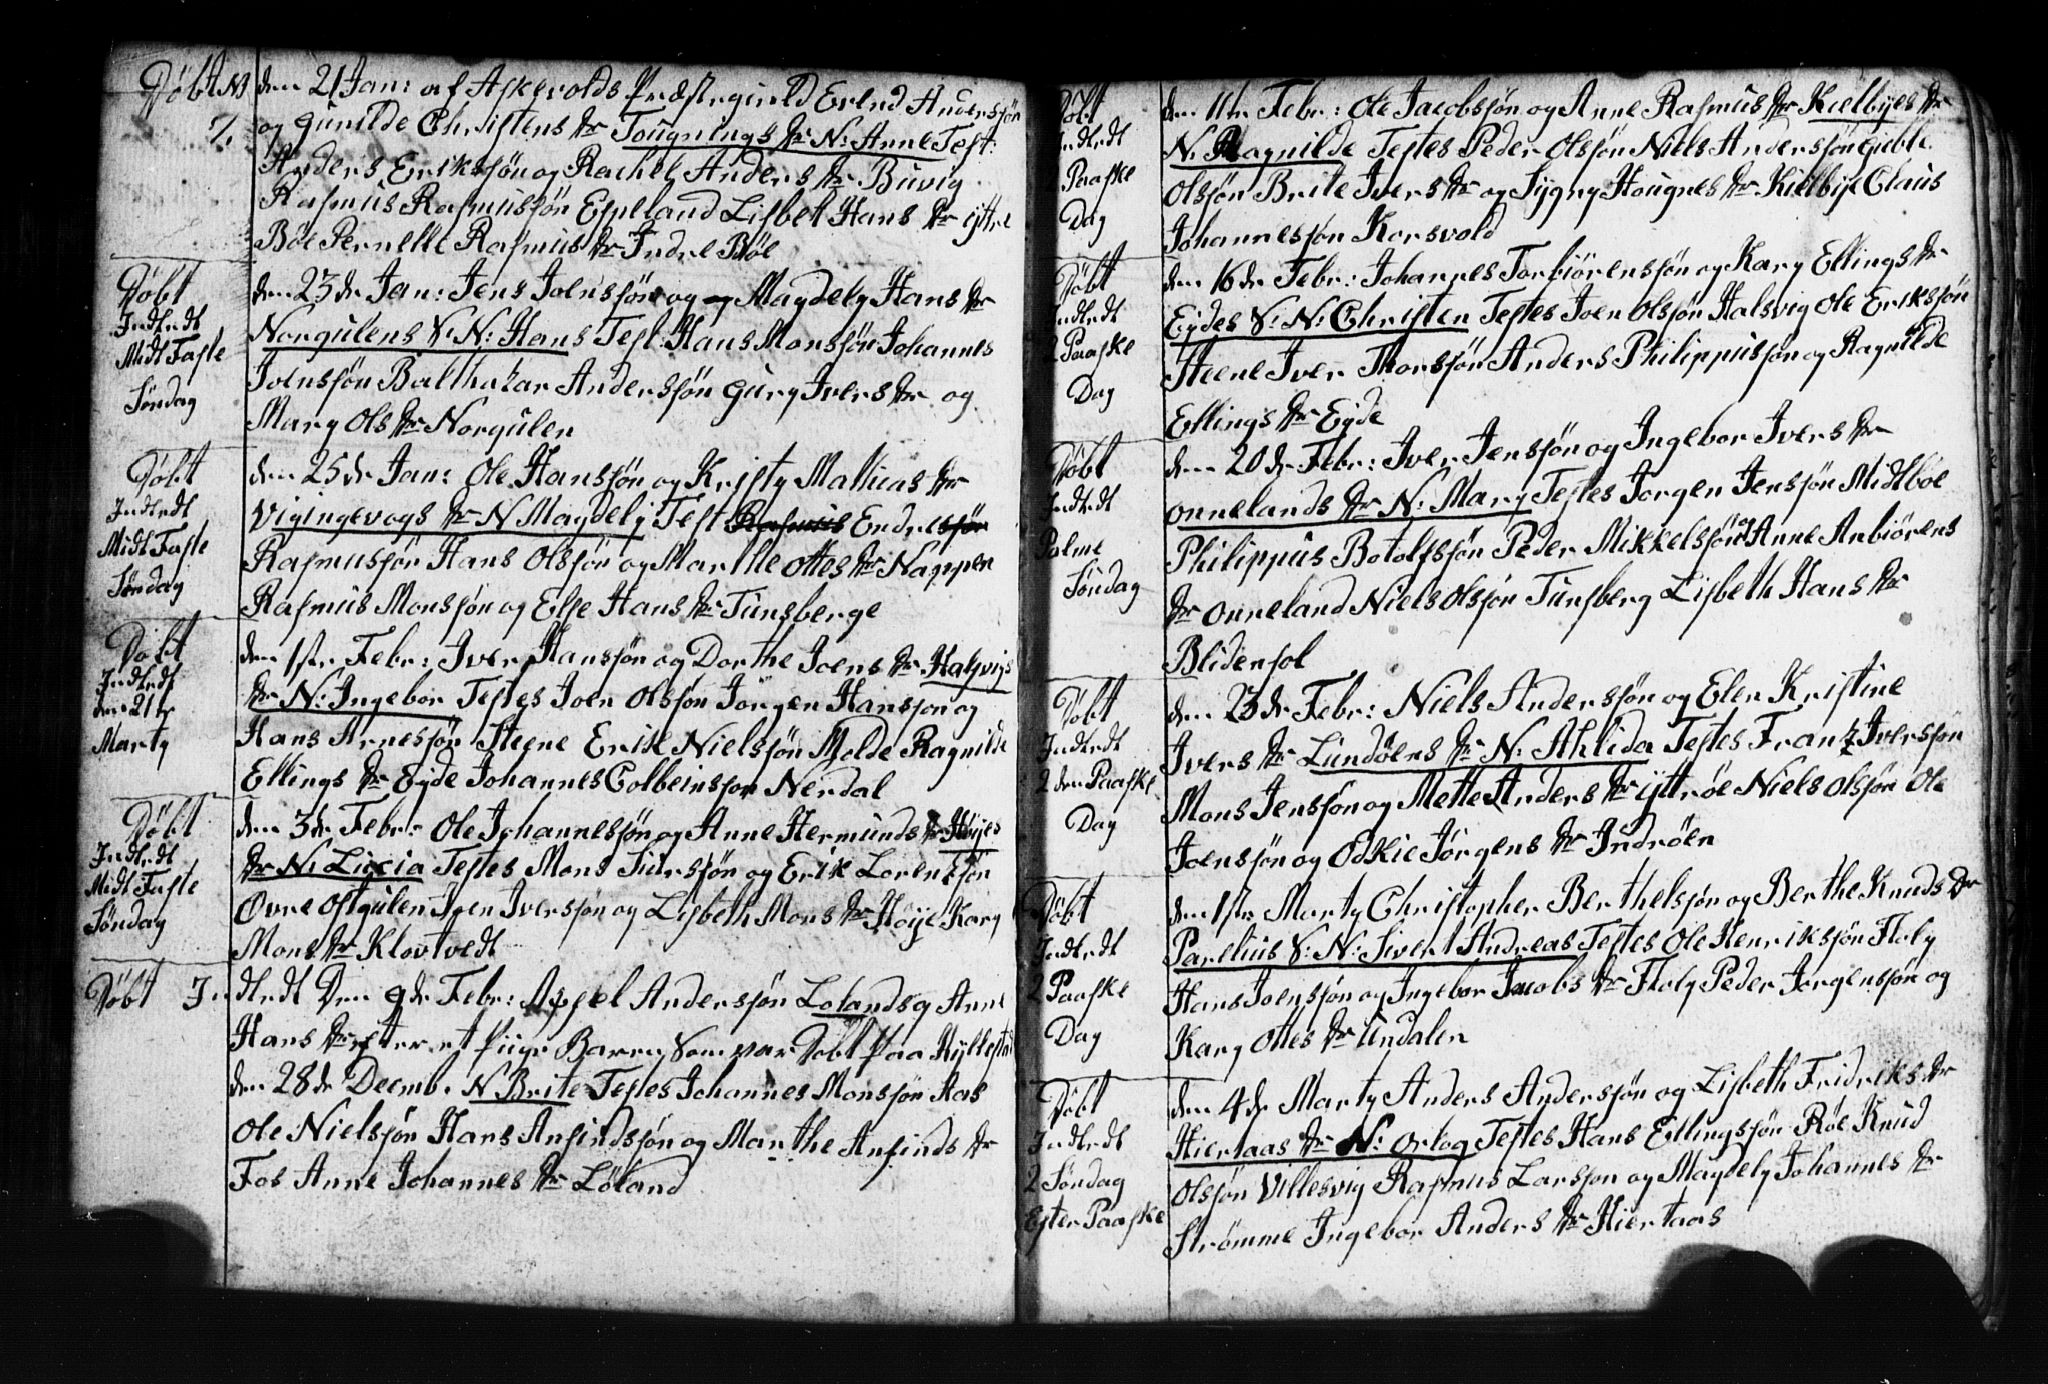 Døbt N
7.
den 21 Jan: af Askevolds Præstegield Erend Andersøn
og Gunilde Christens Dr Tougnings Dr N: Anne Test:
Anders Eriksøn og Rachel Anders Dr Buvig
Rasmus Rasmussøn Espeland Lisbet Hans Dr ÿttre
Böe Pernelle Rasmus Dr Indre Böe
Døbt
Indledt
Midt Faste
Søndag
den 23de Jan: Jens Joensøn og og Magdely Hans Dr
Norgulens S: N: Hans Test: Hans Monssøn Johannes
Joenssøn Balthazar Anderssøn Gury Ivers Dr og
Mary Ols Dr Norgulen
Døbt
Indledt
Midt Faste
Søndag
den 25de Jan: Ole Hanssøn og Kristy Mathias Dr
Vigingevogs Dr N Magdely Test Rasmus Endresøn
Rasmussøn Hans Olssøn og Marthe Ottes Dr Nappen
Rasmus Monssøn og Else Hans Dr Tunsberge
Døbt
Indledt
den 21de
Marty
den 1ste Febr: Iver Hanssøn og Dorthe Joens Dr Halsvigs
Dr N: Ingebor Testes Joen Olssøn Jørgen Hanssøn og
Hans Arnessøn Steene Erik Nielssøn Molde Ragnilde
Ellings Dr Eyde Johannes Colbeinssøn Nerdal
Døbt
Indledt
Midt Faste
Søndag
den 3de Febr: Ole Johannessøn og Anne Hermunds Dr Høyes
Dr N: Liccia Testes Mons Siurssøn og Erik Lorentzsøn
Øvre Ostgulen Joen Iverssøn og Lisbeth Mons Dr Høije Kary
Mons Dr Klovtvedt
Døbt Indledt Den 9de Febr: Axsel Anderssøn Lolands og Anne
Hans Dr efter et Piige Barn Som var Døbt Paa Kyllestad
den 28de Decmb. N Brite Testes Johannes Monssøn Aas
Ole Nielssøn Hans Anfindssøn og Marthe Anfinds Dr
Fos Anne Johannes Dr Løland
Døbt
Indledt
2 Paaske
Dag
den 11te Febr: Ole Jacobssøn og Anne Rasmus Dr Kielbyes Dr
N: Ragnilde Testes Peder Olssøn Niels Anderssøn Gieble
Olssøn Brite Ivers Dr og Sygny Hougnes Dr Kielbye Claus
Johannessøn Korsvold
Døbt
Indledt
2 Paaske
Dag
den 16de Febr: Johannes Torbiörenssøn og Kary Ellings Dr
Eydes S: N: Christen Testes Joen Olssøn Halsvig Ole Erikssøn
Steene Iver Thorssøn Anders Philippussøn og Ragnilde
Ellings Dr Eyde
Døbt
Indledt
Palme
Søndag
den 20de Febr: Iver Jenssøn og Ingebor Ivers Dr
Onnelands Dr N: Mary Testes Jorgen Jenssøn Midtboe
Philippus Botolfssøn Peder Mikkelssøn og Anne Anbiörens
Dr Onneland Niels Olssøn Tunsberg Lisbeth Hans Dr
Blidensol
Døbt
Indledt
2 den Paaske
Dag
den 23de Febr: Niels Anderssøn og Elen Kristine
Ivers Dr Lundöens Dr N. Ahlida Testes Frantz Iverssøn
Mons Jenssøn og Mette Anders Dr ÿttrøe Niels Olssøn Ole
Joenssøn og Odkie Jørgens Dr Indrøen
Døbt
Indledt
2 Paaske
Dag
den 1ste Marty Christopher Berthelssøn og Berthe Knuds Dr
Parelius S: N: Sivert Andreas Testes Ole Henrikssøn Floly
Hans Joenssøn og Ingebor Jacobs Dr Floly Peder Jorgenssøn og
Kary Ottes Dr Undalen
Døbt
Indledt
2 Søndag
Efter Paaske
den 4de Marty Anders Anderssøn og Lisbeth Fridriks Dr
Hiertaas Dr N: Ortog Testes Hans Ellingssøn Röe Knud
Olssøn Villesvig Rasmus Larssøn og Magdely Johannes Dr
Strømme Ingebor Anders Dr Hiertaas